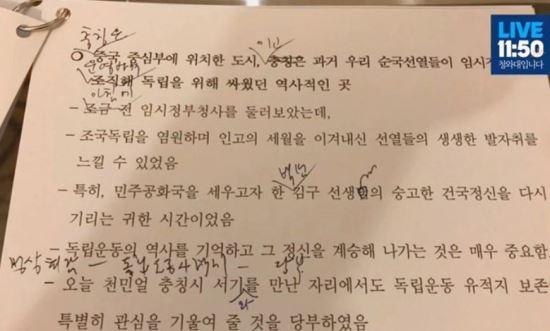 LIVE
11:50
청와대입니다
충칭은
○ 중국 중심부에 위치한 도시, 충칭은 과거 우리 순국선열들이 임시정
이고
운영하며
조직해 독립을 위해 싸웠던 역사적인 곳
아침에
- 조금 전 임시정부청사를 둘러보았는데,
- 조국독립을 염원하며 인고의 세월을 이겨내신 선열들의 생생한 발자취를
느낄 수 있었음
백범
- 특히, 민주공화국을 세우고자 한 김구 선생님의 숭고한 건국정신을 다시
기리는 귀한 시간이었음
- 독립운동의 역사를 기억하고 그 정신을 계승해 나가는 것은 매우 중요함
- 오늘 천민얼 충칭시 서기를 만난 자리에서도 독립운동 유적지 보존
와
특별히 관심을 기울여 줄 것을 당부하였음